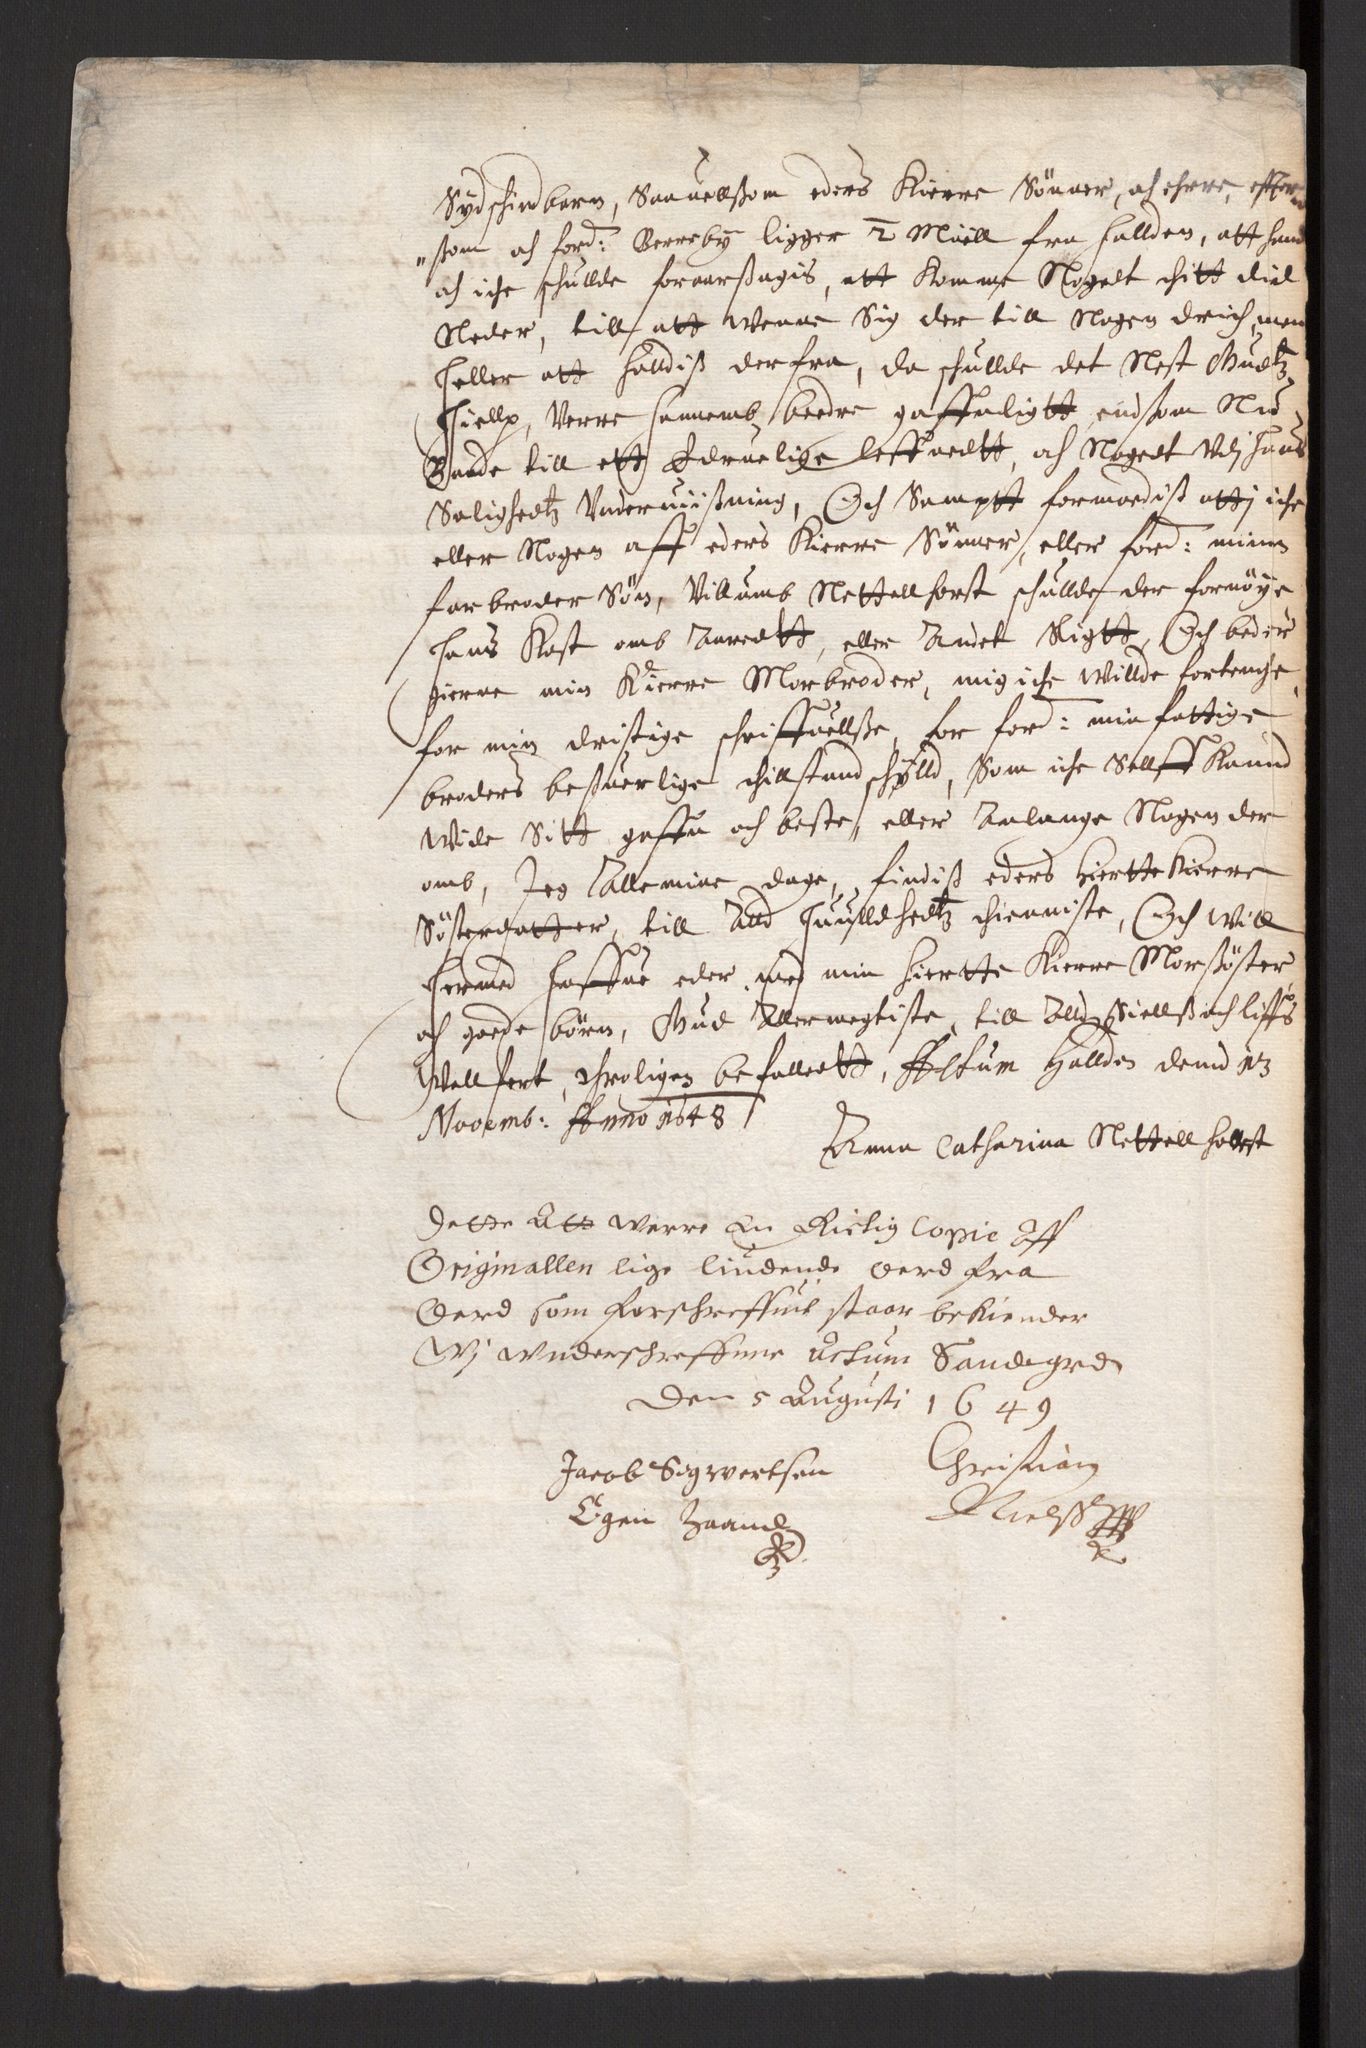 Sydschindbarn, Saauellsom eders Kierre Sönner, och ehrre, effter
"som och ford: Berreby ligger 2 Miill fra Hallden, att hand
och iche schullde foraarsagis, att komme Nogelt hitt did
Neder, till att wenne Sig der till Nogen drich, men
heller att holldis der fra, da schullde det Nest Gudtz
Hielp, Verre hannemb beedre gaffnligtt endsom Nu
Baade till ett Edruelige leffnedtt, och Nogett Vdj hans
Salighedtz Vnderuiissning, Och Samptt formodist attj iche
eller Nogen aff eders Kierre Sönner, eller ford: minn
farbroder Sön, Villumb Nettellhorst schullde der fornöye
hans Kost omb Aaredtt, eller Andet Sligtt, Och beder
gierne min Kierre Morbroder, mig iche willde fortenche
for min dristige schriffuellsse, for ford: min fattige
broders besuerlige thillstand schylld, Som iche Sellff Kaand
wide Sitt gaffn och beste, eller Anlange Nogen der
omb, Jeg Alle mine dage, findis eders hiertte Kierre
Söster datter, till Alld huulldhedtz thienniste, Och will
hermed haffue eder med min hiertte Kierre Morsöster
och goede börn, Gud Allermegtiste, till Alld Siells och liffs
Wellfert, throligen befalledtt, Actum Hallden dend 13
Novemb: Anno 1648
Anna Catharina Nettellhorst
Dette Att werre En Rictig Copie Aff
Originallen lige liudende Oerd fra
Oerd som forschreffuit staar bekiender
Wj wnderschreffnne Actum Sandegrd
Den 5 Augusti 1649
Jacob Sigvertsen Christian
Egen Haand Nielss